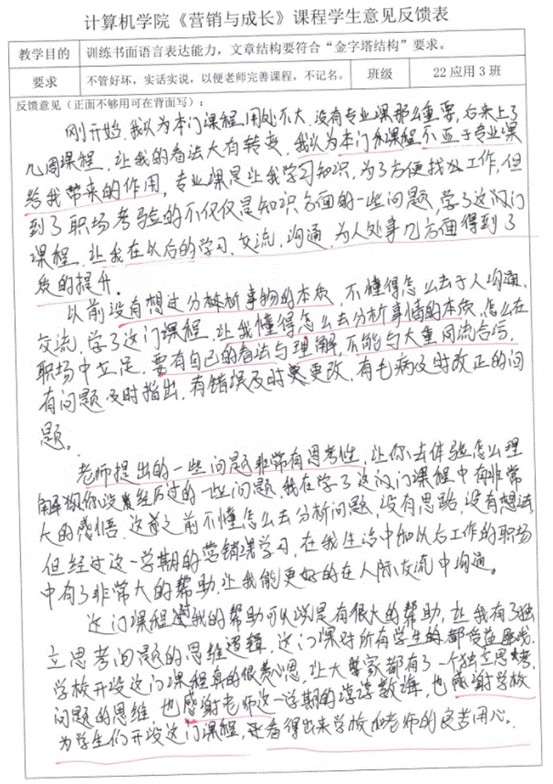 计算机学院《营销与成长》课程学生意见反馈表
教学目的 训练书面语言表达能力，文章结构要符合“金字塔结构”要求。
要求 不管好坏，实话实说，以便老师完善课程，不记名。 班级 22应用3班
反馈意见（正面不够用可在背面写）：
刚开始，我认为本门课程用处不大，没有专业课那么重要，后来上了
几周课程，让我的看法大有转变，我认为本门课程不亚于专业课
给我带来的作用，专业课是让我学习知识，为了方便找份工作，但
到了职场考验的不仅仅是知识方面的一些问题，学了这门
课程，让我在以后的学习、交流、沟通、为人处事几方面得到了
质的提升。
以前没有想过分析事物的本质，不懂得怎么去于人沟通，
交流，学了这门课程，让我懂得怎么去分析事情的本质，怎么在
职场中立足，要有自己的看法与理解，不能与大重同流合污，
有问题及时指出，有错误及时更改，有毛病及时改正的问
题。
老师提出的一些问题非常有思考性，让你去体验怎么理
解你没经历过的一些问题，我在学了这门课程中有非常
大的感悟，这之前不懂怎么去分析问题，没有思路，没有想法
但经过这一学期的营销课学习，在我生活中加以后工作的职场
中有了非常大的帮助，让我能更好的在人际交流中沟通。
这门课程对我的帮助可以说是有很大的帮助，让我有了独
立思考问题的思维逻辑，这门课对所有学生的都有益
学校开设这门课程真的很费心思，让大家都有了一个独立思考
问题的思维，也感谢老师这一学期的谆谆教诲，也感谢学校
为学生们开设这门课程，还看得出来学校和老师的良苦用心。